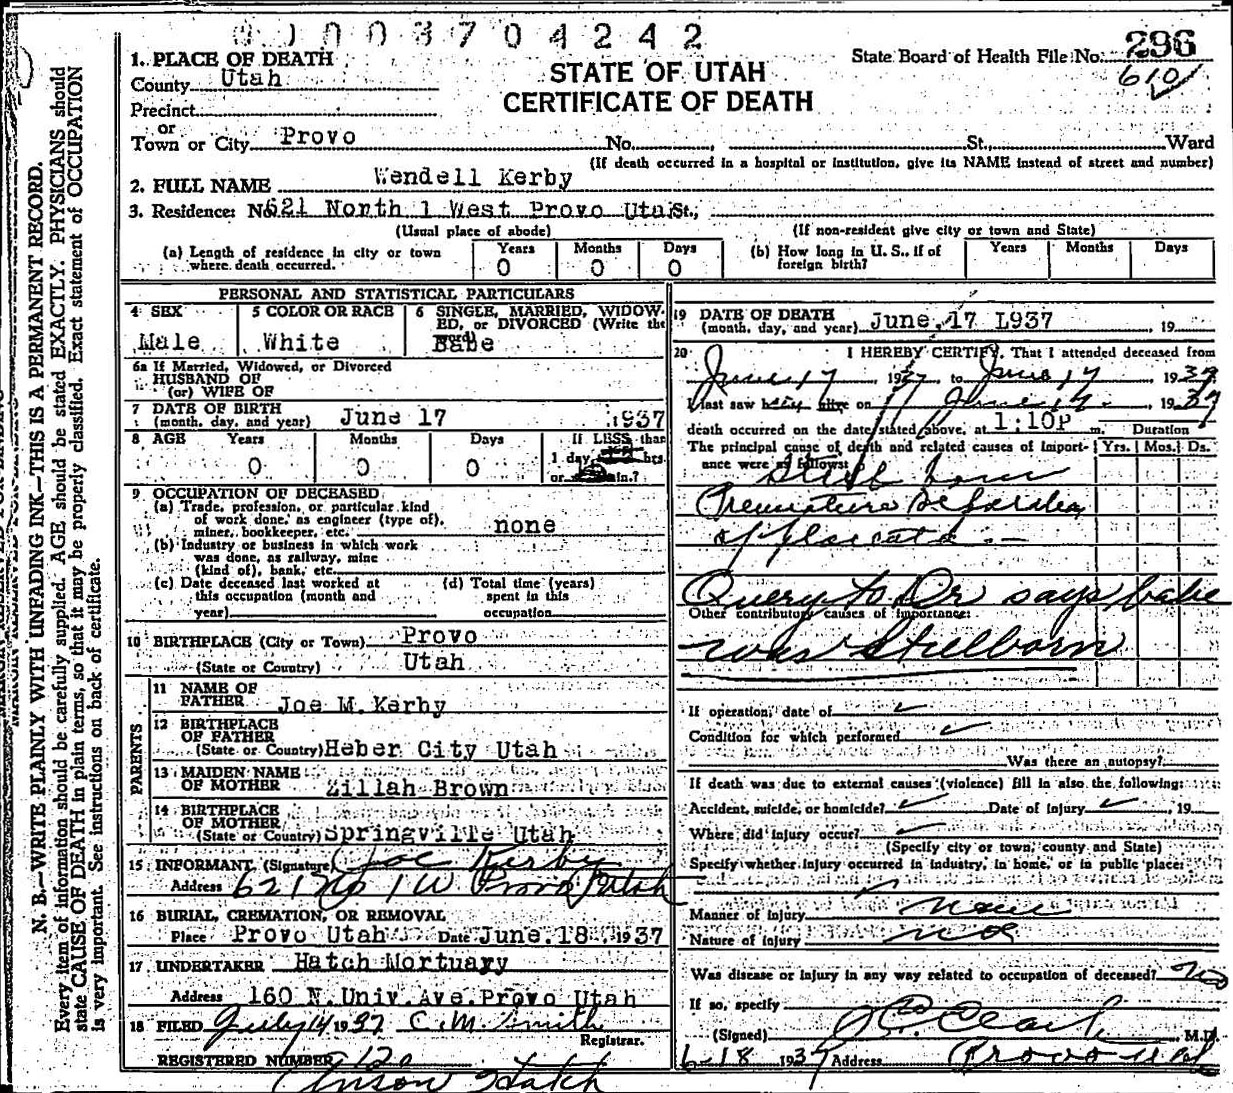 0 1 0 0 3 7 0 4 2 4 2
296
State Board of Health File No.
610
STATE OF UTAH
CERTIFICATE OF DEATH
1. PLACE OF DEATH
County Utah
Precinct
or
Town or City Provo No. , St., Ward
(If death occurred in a hospital or institution, give its NAME instead of street and number)
2. FULL NAME Wendell Kerby
3. Residence: No 621 North 1 West Provo Utah St.,
(Usual place of abode) (If non-resident give city or town and State)
(a) Length of residence in city or town where death occurred. Years 0 Months 0 Days 0
(b) How long in U. S., if of foreign birth? Years Months Days
PERSONAL AND STATISTICAL PARTICULARS
4 SEX Male
5 COLOR OR RACE White
6 SINGLE, MARRIED, WIDOWED, or DIVORCED (Write the word) Babe
6a If Married, Widowed, or Divorced
HUSBAND OF
(or) WIFE OF
7 DATE OF BIRTH
(month, day, and year) June 17 1937
8 AGE Years 0 Months 0 Days 0 If LESS than
1 day hrs.
or min.?
9 OCCUPATION OF DECEASED
(a) Trade, profession, or particular kind
of work done, as engineer (type of),
miner, bookkeeper, etc. none
(b) Industry or business in which work
was done, as railway, mine
(kind of), bank, etc.
(c) Date deceased last worked at
this occupation (month and
year)
(d) Total time (years)
spent in this
occupation
10 BIRTHPLACE (City or Town) Provo
(State or Country) Utah
PARENTS
11 NAME OF
FATHER Joe M. Kerby
12 BIRTHPLACE
OF FATHER
(State or Country) Heber City Utah
13 MAIDEN NAME
OF MOTHER Zillah Brown
14 BIRTHPLACE
OF MOTHER
(State or Country) Springville Utah
15 INFORMANT, (Signature) Joe Kerby
Address 621 No 1 W Provo Utah
16 BURIAL, CREMATION, OR REMOVAL
Place Provo Utah Date June. 18 1937
17 UNDERTAKER Hatch Mortuary
Address 160 N. Univ. Ave. Provo Utah
18 FILED July 14 1937 C. M. Smith
Registrar.
REGISTERED NUMBER 120
Anson Hatch
19 DATE OF DEATH
(month, day, and year) June. 17 1937 , 19
20 I HEREBY CERTIFY, That I attended deceased from
June 17, 1937 to June 17, 1937
I last saw h alive on June 17, 1937
death occurred on the date stated above, at 1:10P m. Duration
The principal cause of death and related causes of importance were as follows: Yrs. Mos. Ds.
Still born
Premature
of placenta
Query to Dr says babe
Other contributory causes of importance:
was Stillborn
If operation, date of
Condition for which performed
Was there an autopsy?
If death was due to external causes (violence) fill in also the following:
Accident, suicide, or homicide? Date of injury , 19
Where did injury occur?
(Specify city or town, county and State)
Specify whether injury occurred in industry, in home, or in public place:
Manner of injury none
Nature of injury
Was disease or injury in any way related to occupation of deceased? no
If so, specify
(Signed) Clark M.D.
6-18 1937 Address Provo Utah
N. B.—WRITE PLAINLY WITH UNFADING INK—THIS IS A PERMANENT RECORD.
Every item of information should be carefully supplied. AGE should be stated EXACTLY. PHYSICIANS should
state CAUSE OF DEATH in plain terms, so that it may be properly classified. Exact statement of OCCUPATION
is very important. See instructions on back of certificate.